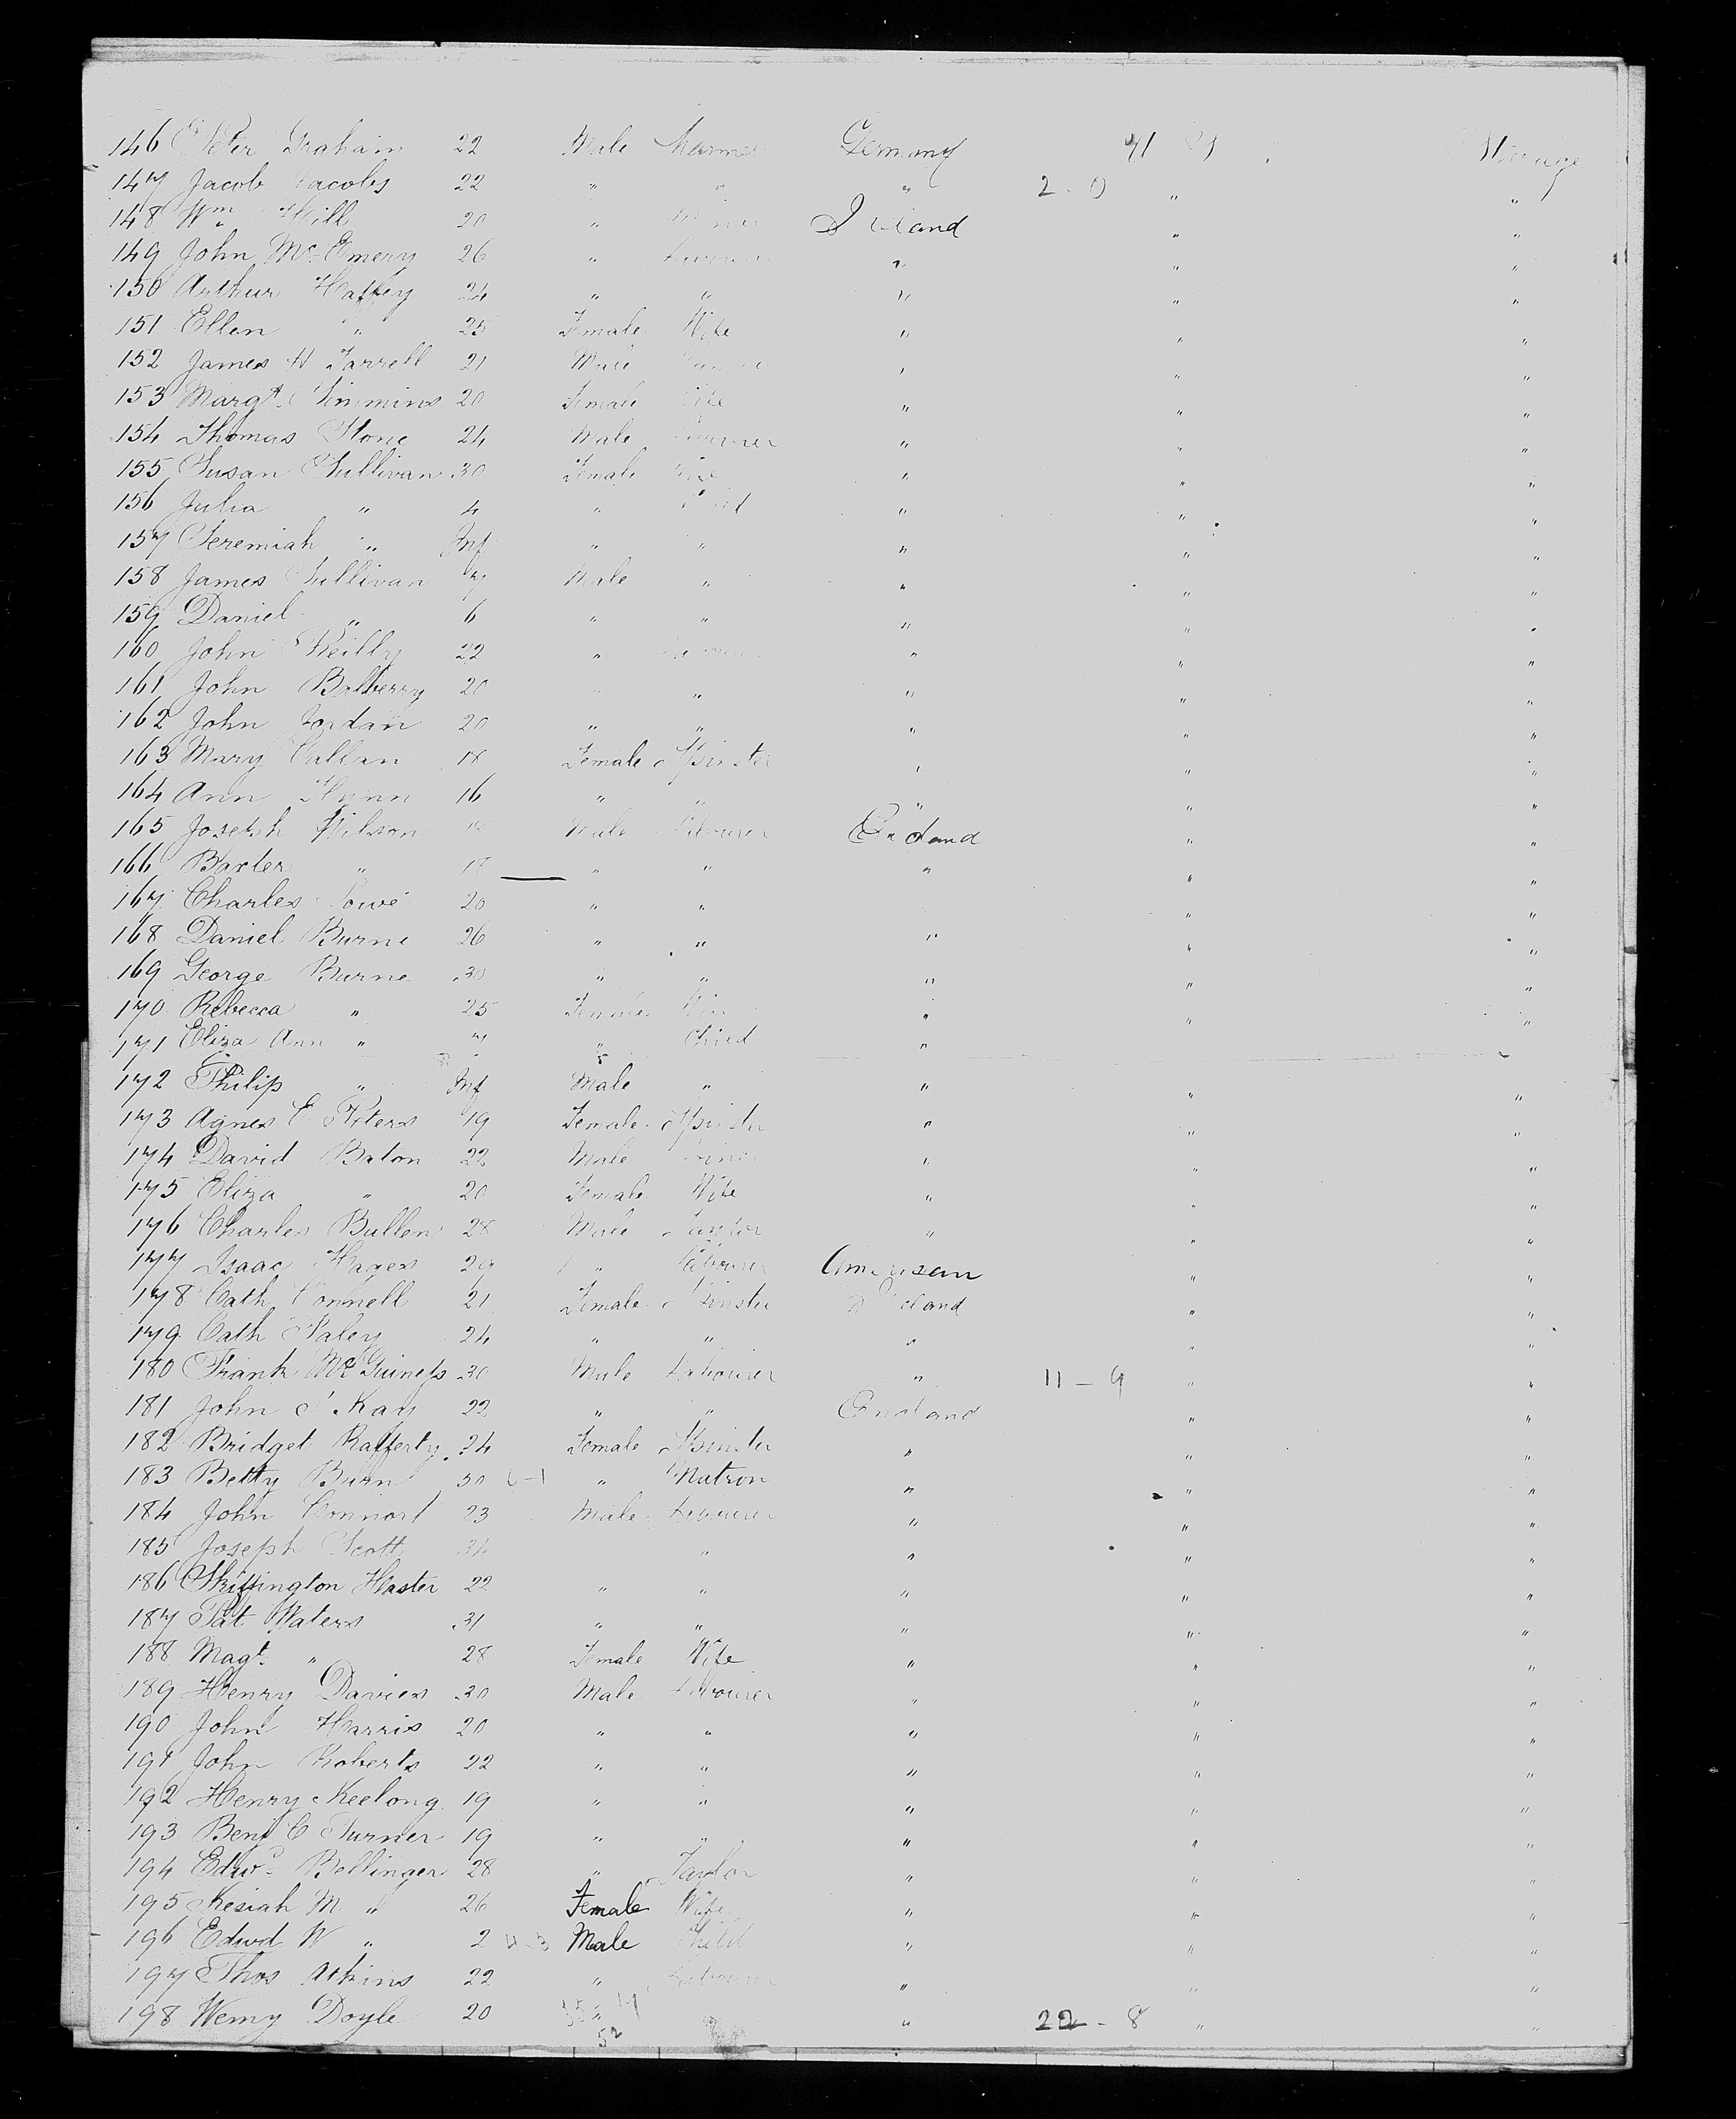 146 Peter Graham 22 Male Germany Steerage
147 Jacob Jacobs 22 " " " 2-0 " "
148 Wm Hill 20 " Ireland " "
149 John Mc Emery 26 " Labourer " " "
150 Arthur Haffey 24 " " " " "
151 Ellen " 25 Female Wife " " "
152 James H Farrell 21 Male " " "
153 Margt Simmins 20 Female Wife " " "
154 Thomas Stone 24 Male Labourer " " "
155 Susan Sullivan 30 Female Wife " " "
156 Julia " 4 " Child " " "
157 Jeremiah " Inf " " " " "
158 James Sullivan 7 Male " " " "
159 Daniel " 6 " " " " "
160 John Reilly 22 " Labourer " " "
161 John Balberry 20 " " " " "
162 John Jordan 20 " " " " "
163 Mary Callan 18 Female Spinster " " "
164 Ann Flynn 16 " " " " "
165 Joseph Wilson 18 Male Labourer England " "
166 Baxter " " " " " "
167 Charles 20 " " " "
168 Daniel Burne 26 " " " " "
169 George Burne 30 " " " " "
170 Rebecca " 25 Female Wife " " "
171 Eliza Ann " 7 " Child "
172 Philip " Inf Male " " " "
173 Agnes E Peters 19 Female Spinster " " "
174 David Baton 22 Male " " "
175 Eliza " 20 Female Wife " " "
176 Charles Bullen 28 Male Taylor " " "
177 Isaac Hages 29 " Labourer American " "
178 Cath Connell 21 Female Spinster Ireland " "
179 Cath Faley 24 " " " " "
180 Frank McGuiness 30 Male Labourer " 11-9 " "
181 John Kay 22 " " England " "
182 Bridget Rafferty 24 Female Spinster " " "
183 Betty Burn 50 6-1 " Matron " " "
184 John Connort 23 Male Labourer " " "
185 Joseph Scott 34 " " " "
186 Skiffington Haster 22 " " " " "
187 Pat Waters 31 " " " " "
188 Magt " 28 Female Wife " " "
189 Henry Davies 30 Male Labourer " " "
190 John Harris 20 " " " " "
191 John Roberts 22 " " " " "
192 Henry Keelong 19 " " " " "
193 Benj C Turner 19 " " " " "
194 Edwd Bellinger 28 " Taylor " " "
195 Kesiah M " 26 Female Wife " " "
196 Edwd W " 2 4-3 Male Child " " "
197 Thos Atkins 22 " Labourer " " "
198 Henry Doyle 20 " " 22-8 " "
52